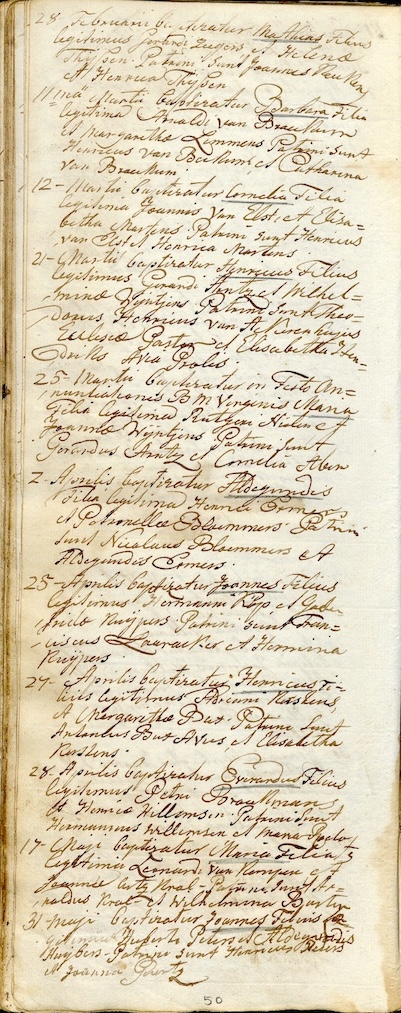 28 Februarii baptizatur Mathias Filius
legitimus Gerardi Zegers et Helenæ
Thijssen. Patrini sunt Joannes
et Henrica Thijssen
11 Martii baptizatur Barbara Filia
legitima Arnoldi van Broeckum
et Margarethæ Lemmens Patrini sunt
Henricus van et Catharina
van Broeckum.
12 - Martii baptizatur Cornelia Filia
legitima Joannis Van Elst, et Elisa=
betha Martens. Patrini sunt Henricus
van Elst et Henrica Martens.
21 - Martii baptizatur Henricus Filius
legitimus Gerardi Arntz et Wilhel=
minæ Wijntjens Patrini sunt Theo=
dorus Henricus van
Ecclesiæ Pastor et Elisabetha Hen=
driks Avia Prolis
25 - Martii baptizatur in Festo An=
nuntiationis B M Virginis Maria
Filia legitima Rutgeri et
Joannæ Wijntjens Patrini sunt
Gerardus Arntz et Cornelia
2 - Aprilis baptizatur Aldegundis
Filia legitima Henrici Comers
et Petronellæ Bloemmers Patrini
sunt Nicolaus Bloemmers et
Aldegundis Comers.
25 - Aprilis baptizatur Joannes Filius
legitimus Hermanni et
Kuijpers Patrini sunt Fran=
ciscus et Hermina
Kuijpers
27 - Aprilis baptizatur Henricus Fi=
lius legitimus Adriani Kerstens
et Margaretha But Patrini sunt
Antonius But Avus et Elisabetha
Kerstens.
28 - Aprilis baptizatur Everardus Filius
legitimus Petri Braekmans
et Henricæ Willemsen Patrini sunt
Hermannus Willemsen et Maria
17 - Maji baptizatur Maria Filia
legitima Leonardi van Kempen et
Joannæ Kral - Patrini sunt Ar=
noldus Kral et Wilhelmina
31 - Maji baptizatur Joannes Filius le
gitimus Huberti Peters et Aldegundis
Huijbers - Patrini sunt Henricus Peters
et Joanna
50